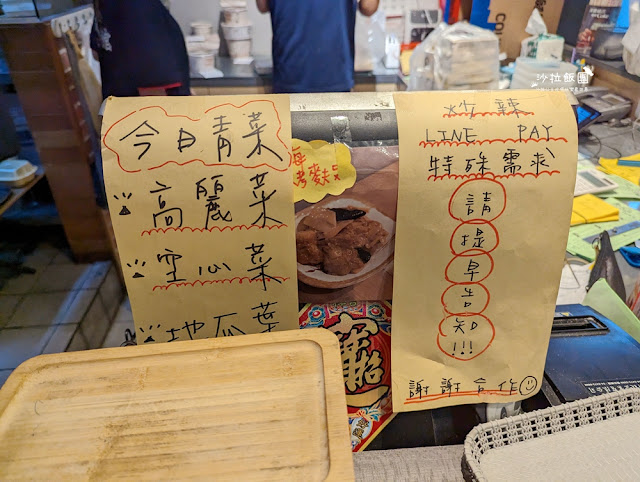 今日青菜
高麗菜
空心菜
地瓜葉
烤麩
炒辣
LINE PAY
特殊需求
請
提
早
告
知
!!!
謝謝合作
沙拉飯團